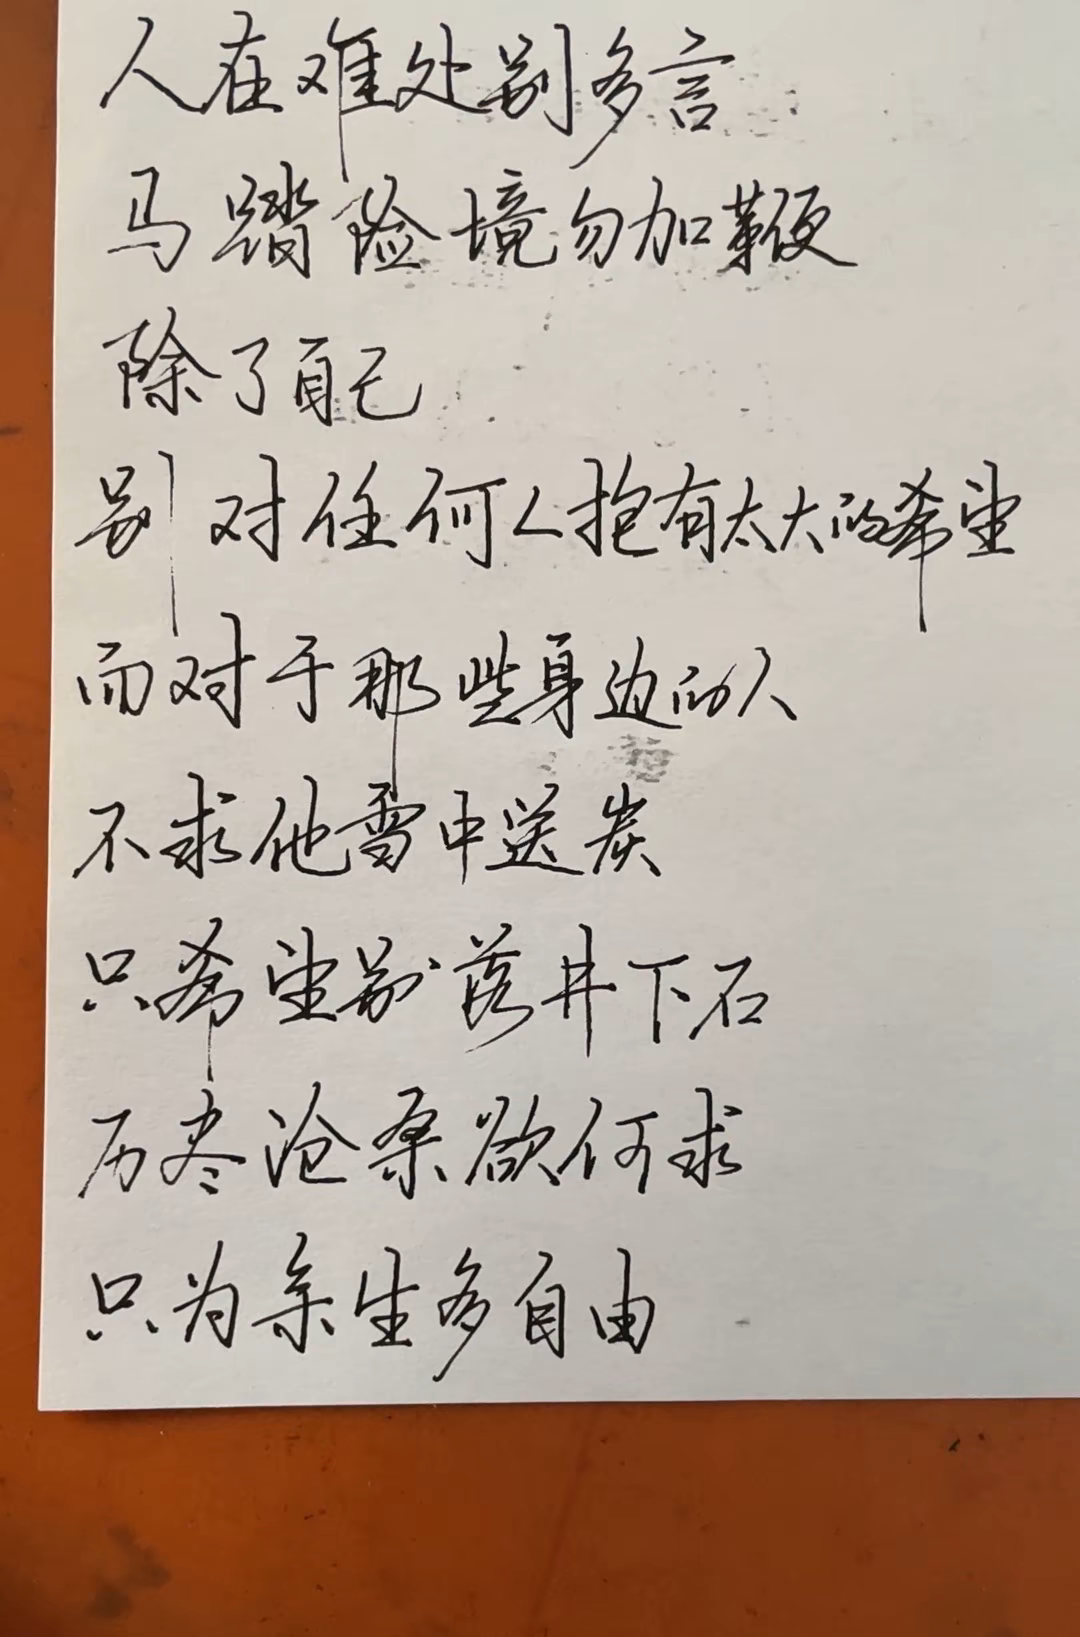 人在难处别多言
马踏险境勿加鞭
除了自己
别对任何人抱有太大的希望
而对于那些身边的人
不求他雪中送炭
只希望别落井下石
历尽沧桑欲何求
只为余生多自由